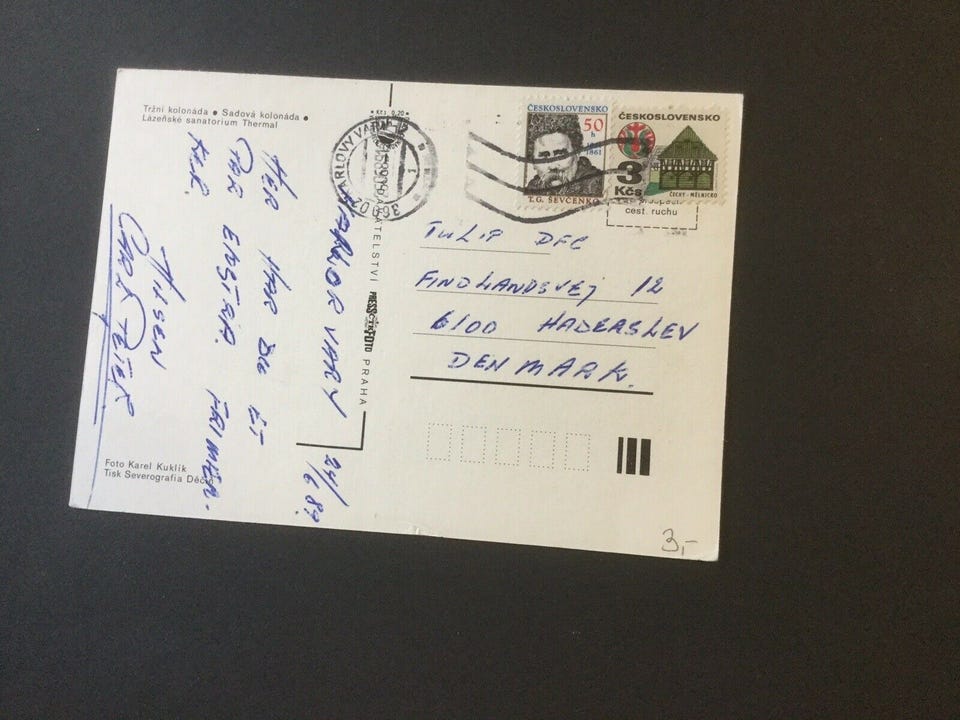 Tržní kolonáda ● Sadová kolonáda ●
Lázeňské sanatorium Thermal
Kčs 0,20
KARLOVY VARY 1
360 02
KARLOR VARY 24/6 89.
HER HAR DU ET
PAR EKSTRA FRIMÆR-
KER.
HILSEN
CARL PETER
Foto Karel Kuklík
Tisk Severografia Děčín
PRESSFOTO PRAHA
ČESKOSLOVENSKO
50 h
1861
T.G. ŠEVČENKO
ČESKOSLOVENSKO
3 Kčs
ČECHY - MĚLNICKO
cest. ruchu
TULIP DFC
FINDLANDSVEJ 12
6100 HADERSLEV
DENMARK.
3,-